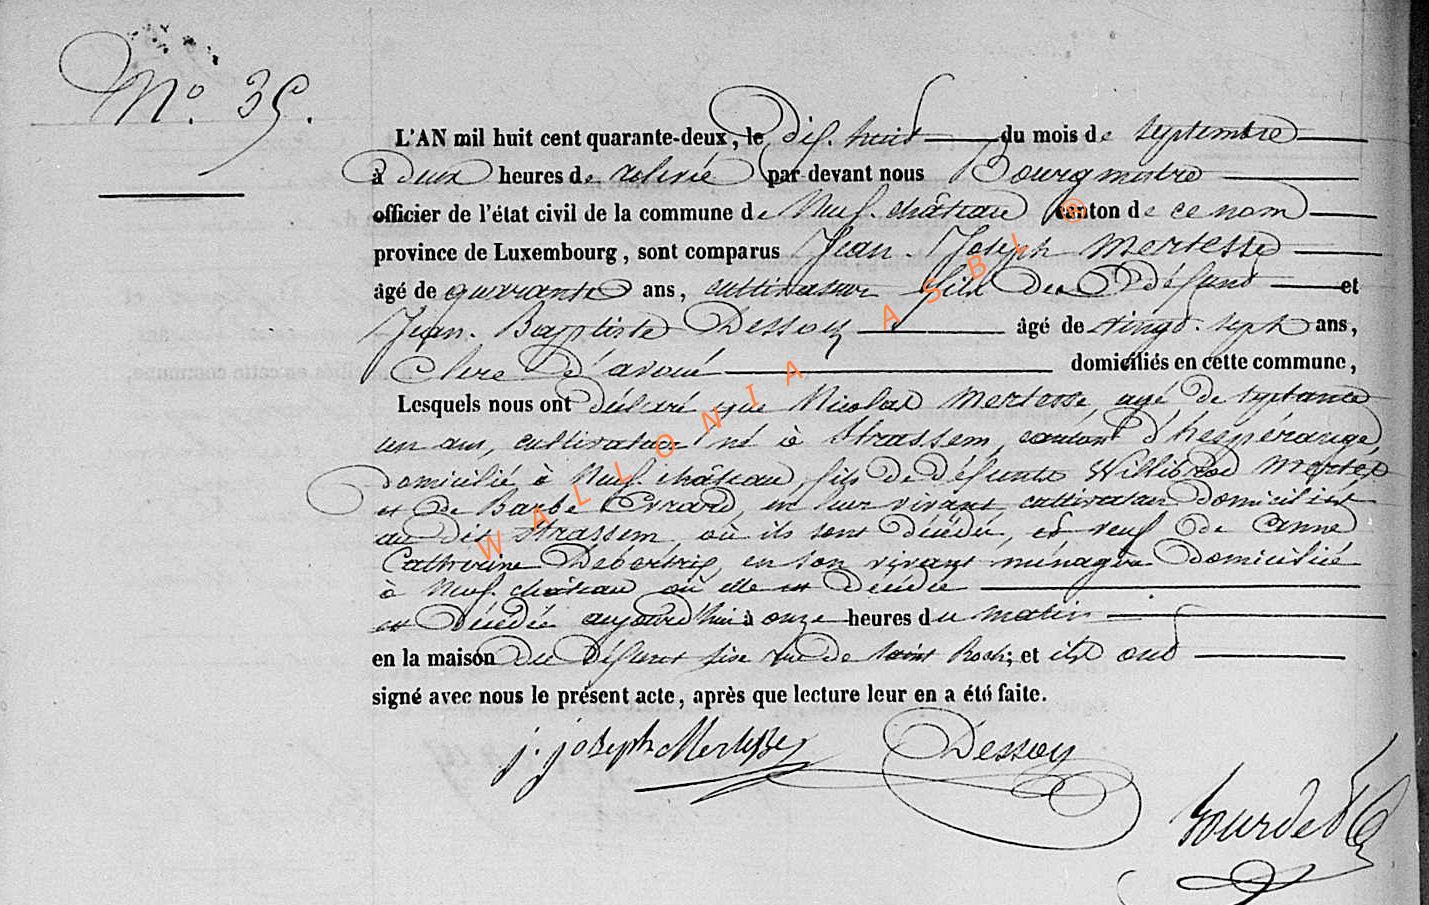 N.º 35.
L'AN mil huit cent quarante-deux, le dix-huit du mois de septembre
à deux heures de relevée par devant nous Bourgmestre
officier de l'état civil de la commune de Neufchâteau canton de ce nom
province de Luxembourg, sont comparus Jean-Joseph Mertesse
âgé de quarante ans, cultivateur fils du Défunt et
Jean-Baptiste Dessoy âgé de vingt-sept ans,
Clerc d'avoué domiciliés en cette commune,
Lesquels nous ont déclaré que Nicolas Mertesse, agé de septante
un ans, cultivateur né à Strassem, canton d'hespérange,
domicilié à Neufchâteau, fils de défunts Willibrod Mertes
et de Barbe Evrard, en leur vivant cultivateur domiciliés
au dit Strassem, où ils sont décédé, et veuf de Anne
Catherine Debertrix, en son vivant ménagère domiciliée
à Neufchâteau où elle est décédée
est décédé aujourd'hui à onze heures du matin
en la maison du défunt sise rue de Saint Roch; et ils ont
signé avec nous le présent acte, après que lecture leur en a été faite.
j. joseph Mertesse Dessoy
WALLONIA ASBL ®